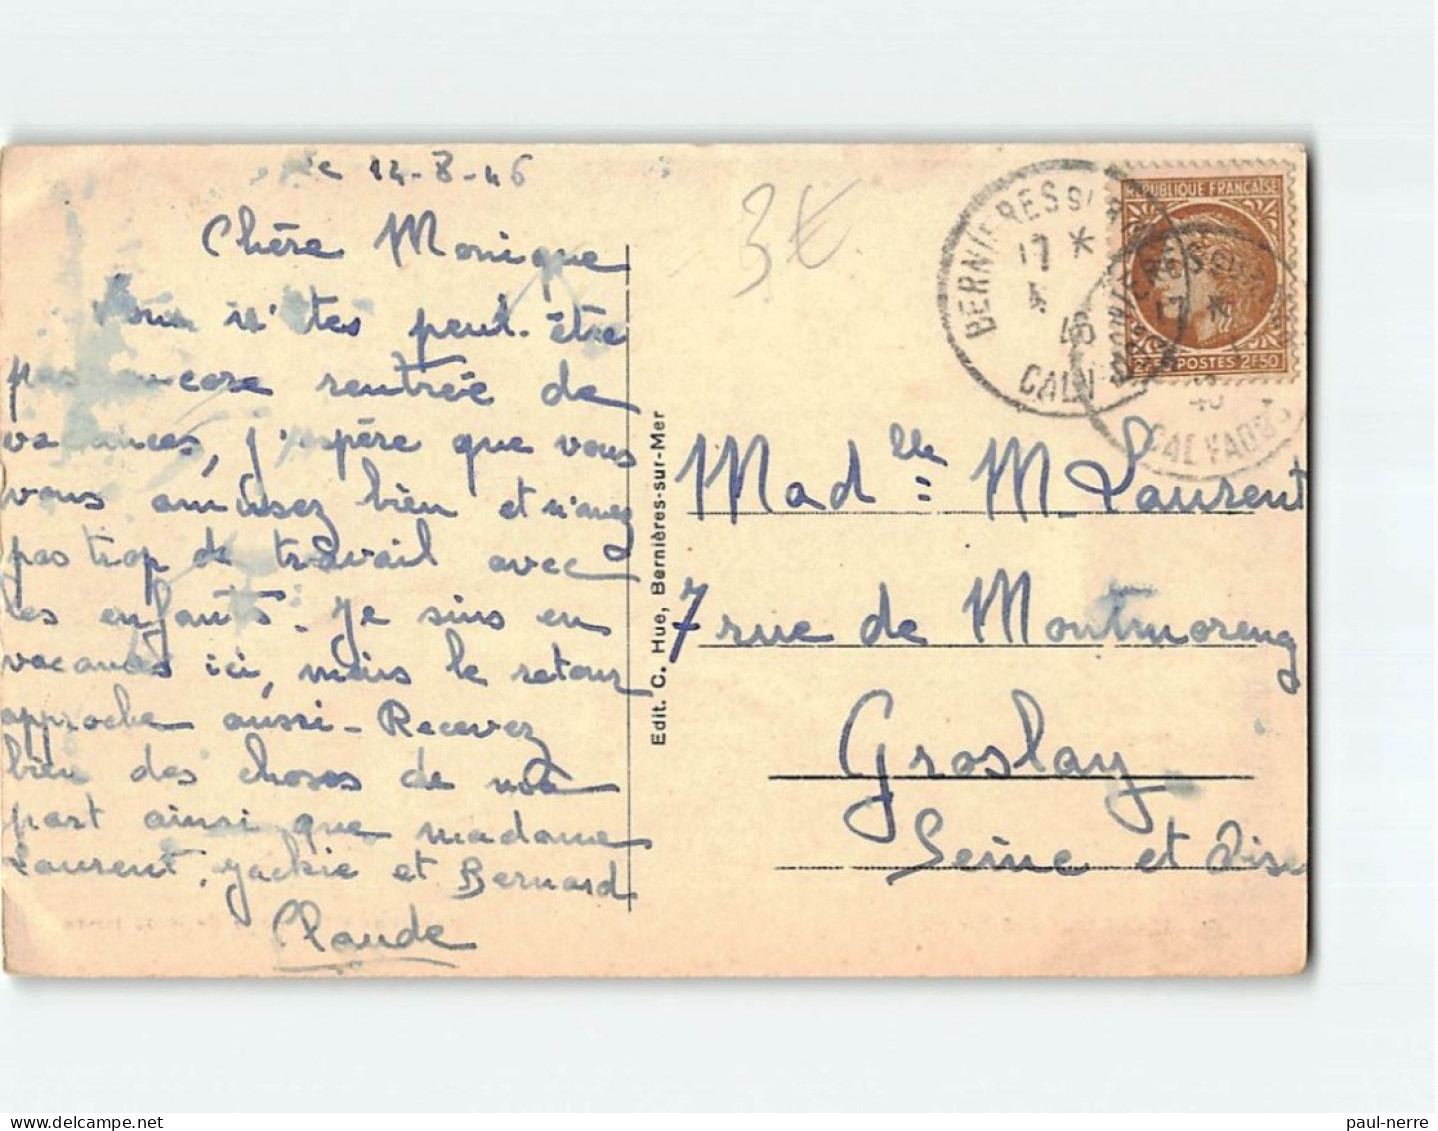 le 14-8-46
Chère Monique
Vous n'êtes peut-être
pas encore rentrée de
vacances, j'espère que vous
vous amusez bien et n'avez
pas trop de travail avec
les enfants. Je suis en
vacances ici, mais le retour
approche aussi - Recevez
bien des choses de ma
part ainsi que madame
Laurent, Jackie et Bernard
Claude
Edit. C. Hue, Bernières-sur-Mer
3€
BERNIERES SUR
17 *
46
CALVADOS
REPUBLIQUE FRANÇAISE
POSTES 2F50
17 *
CALVADOS
Mad lle = M. Laurent
7 rue de Montmorency
Groslay
Seine et Oise
paul-nerre